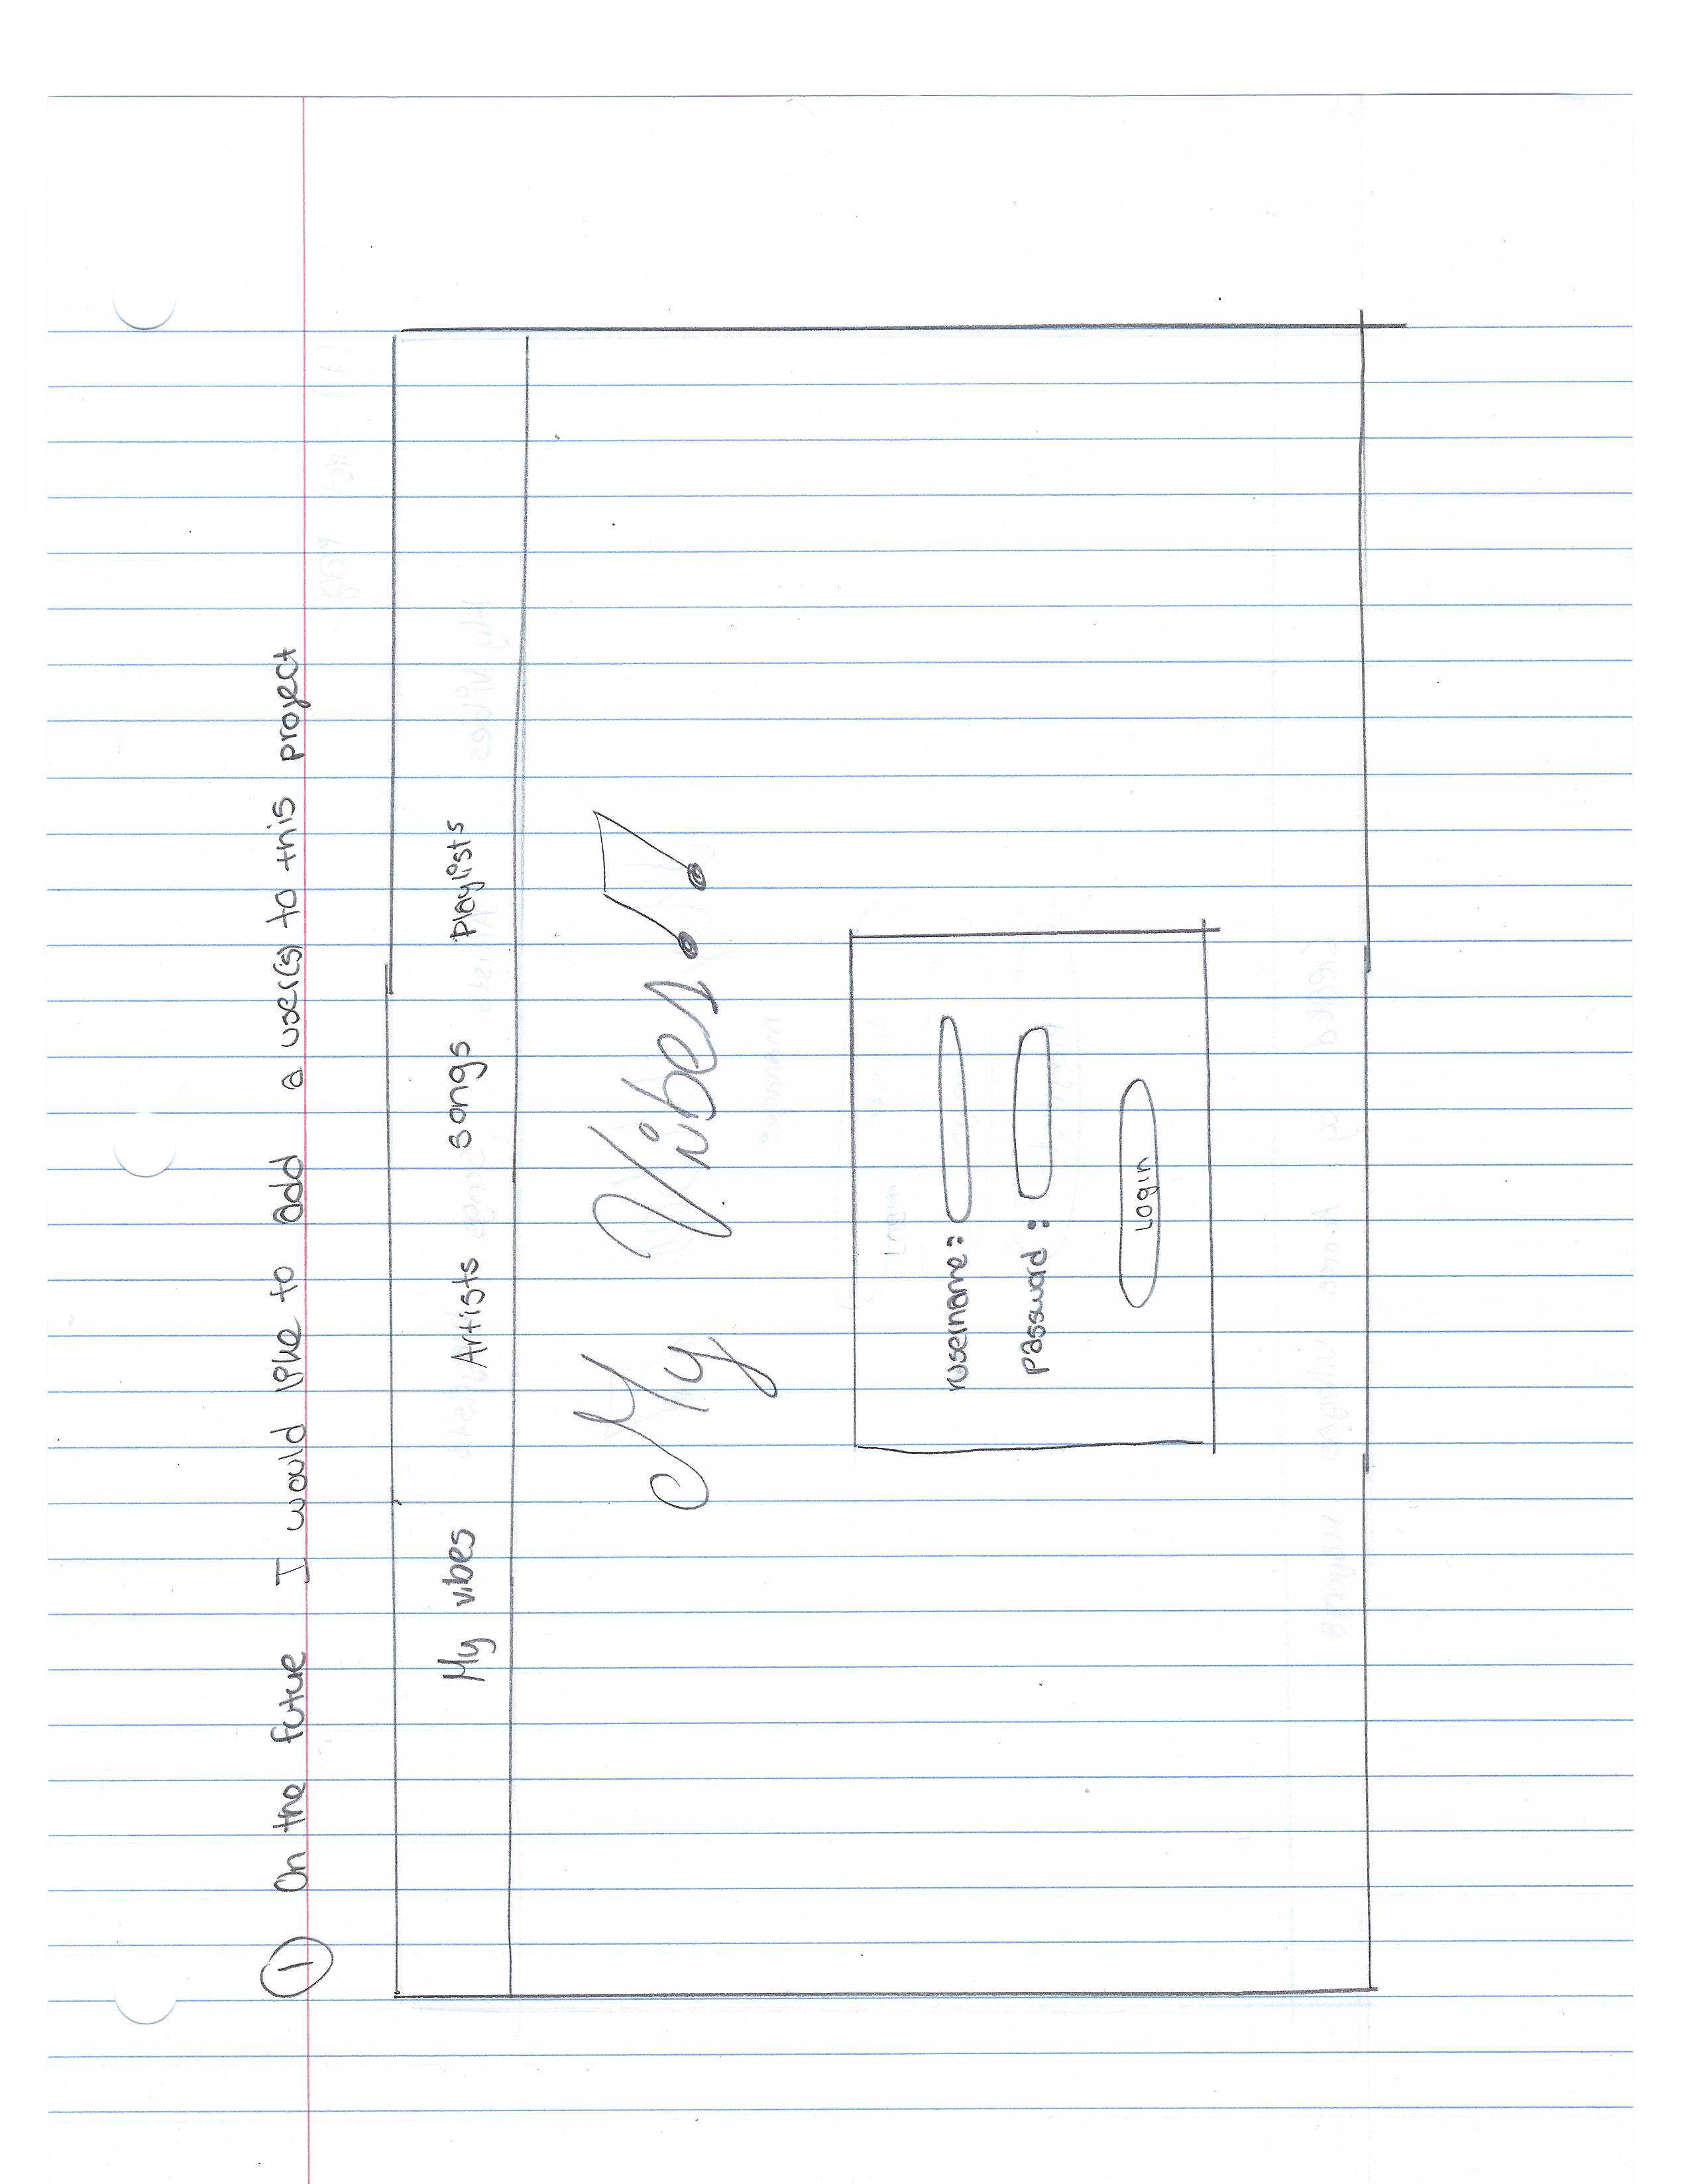 ① On the futue I would like to add a user(s) to this project
My vibes Artists songs Playlists
My Vibes
Login
username:
password:
Login